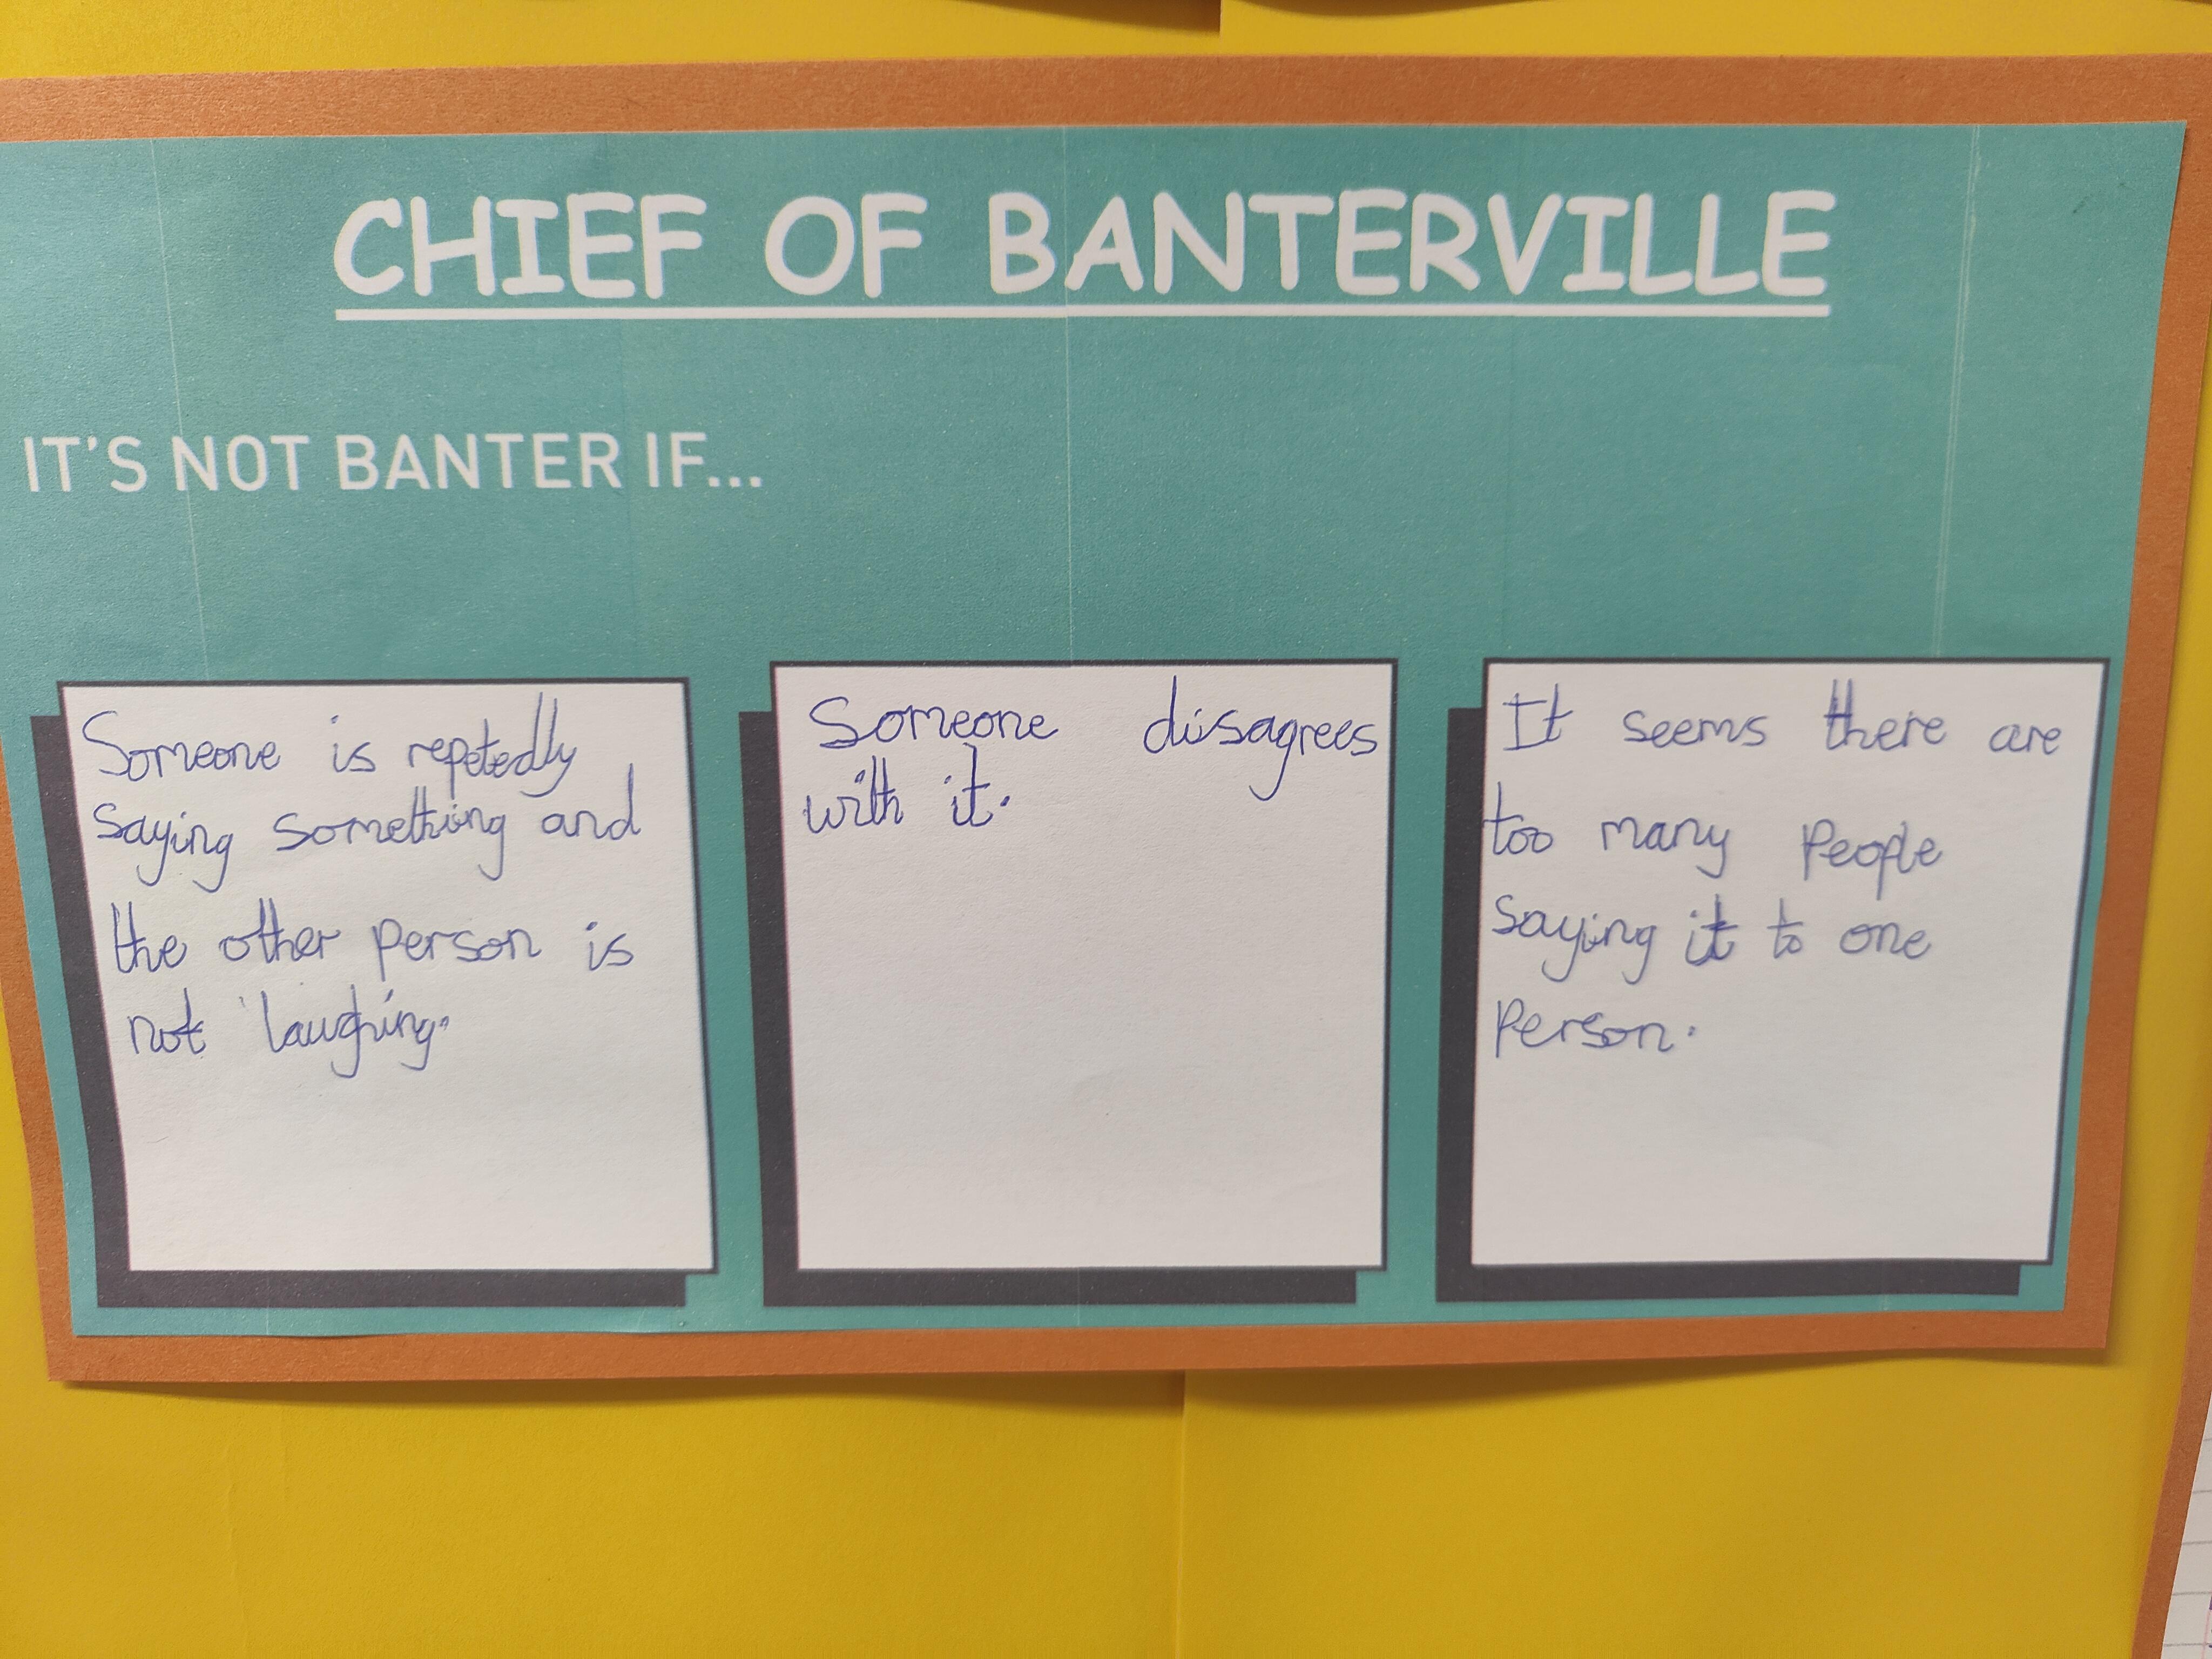 CHIEF OF BANTERVILLE
IT'S NOT BANTER IF...
Someone is repetedly
saying something and
the other person is
not laughing.
Someone disagrees
with it.
It seems there are
too many people
saying it to one
person.